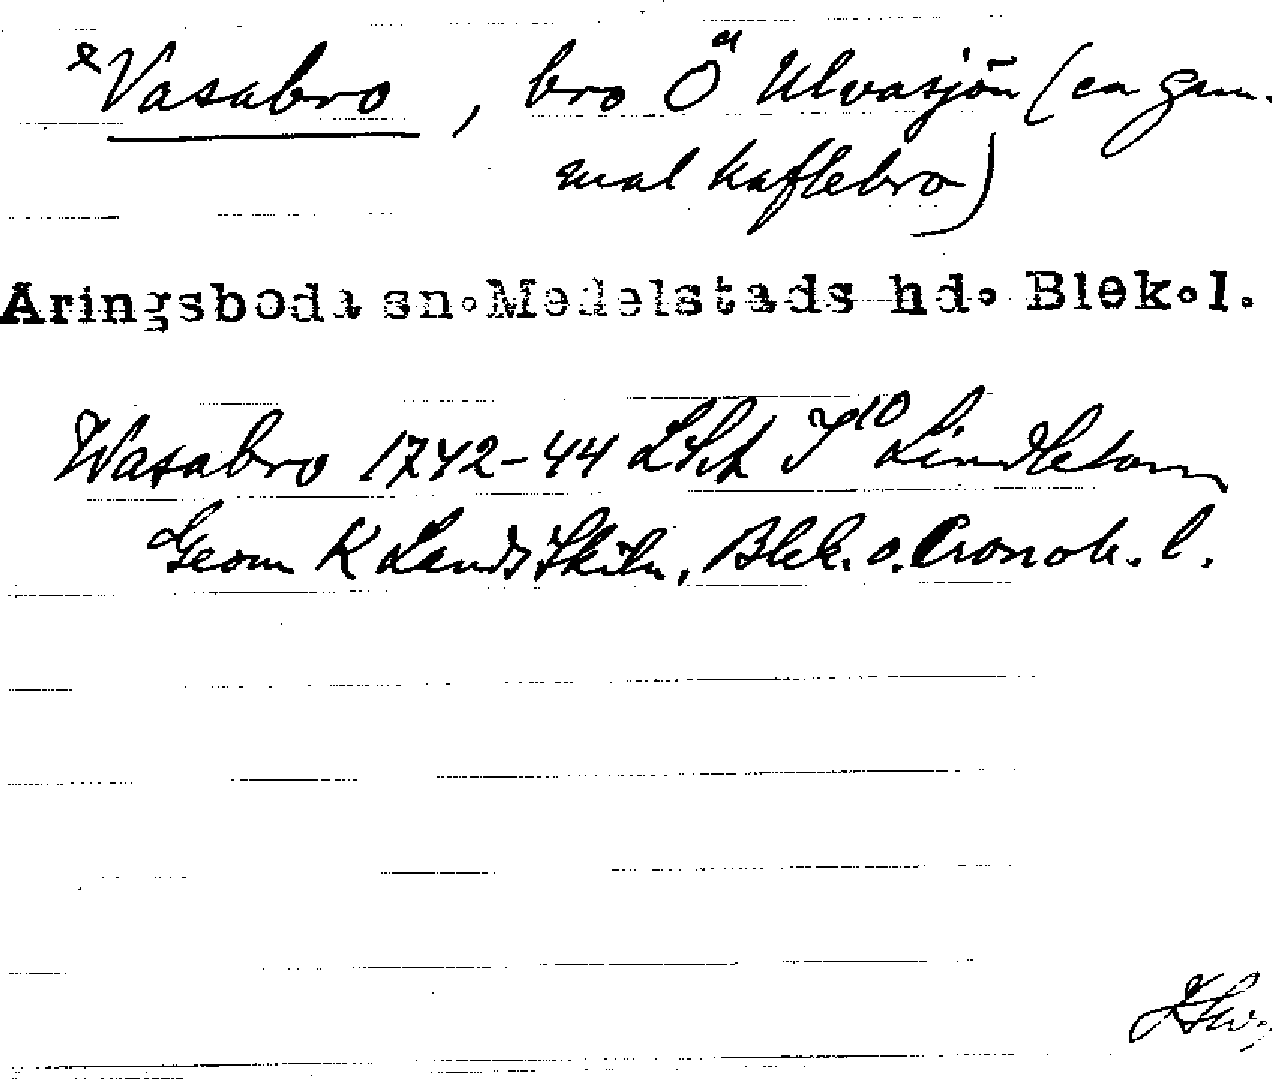 Vasabro, bro Ö Ulvasjön (en gam-
mal kaflebro)
Äringsboda sn. Medelstads hd. Blek. l.
Wasabro 1742-44
Geom K Lands Skiln. Blek. o. Cronob. l.